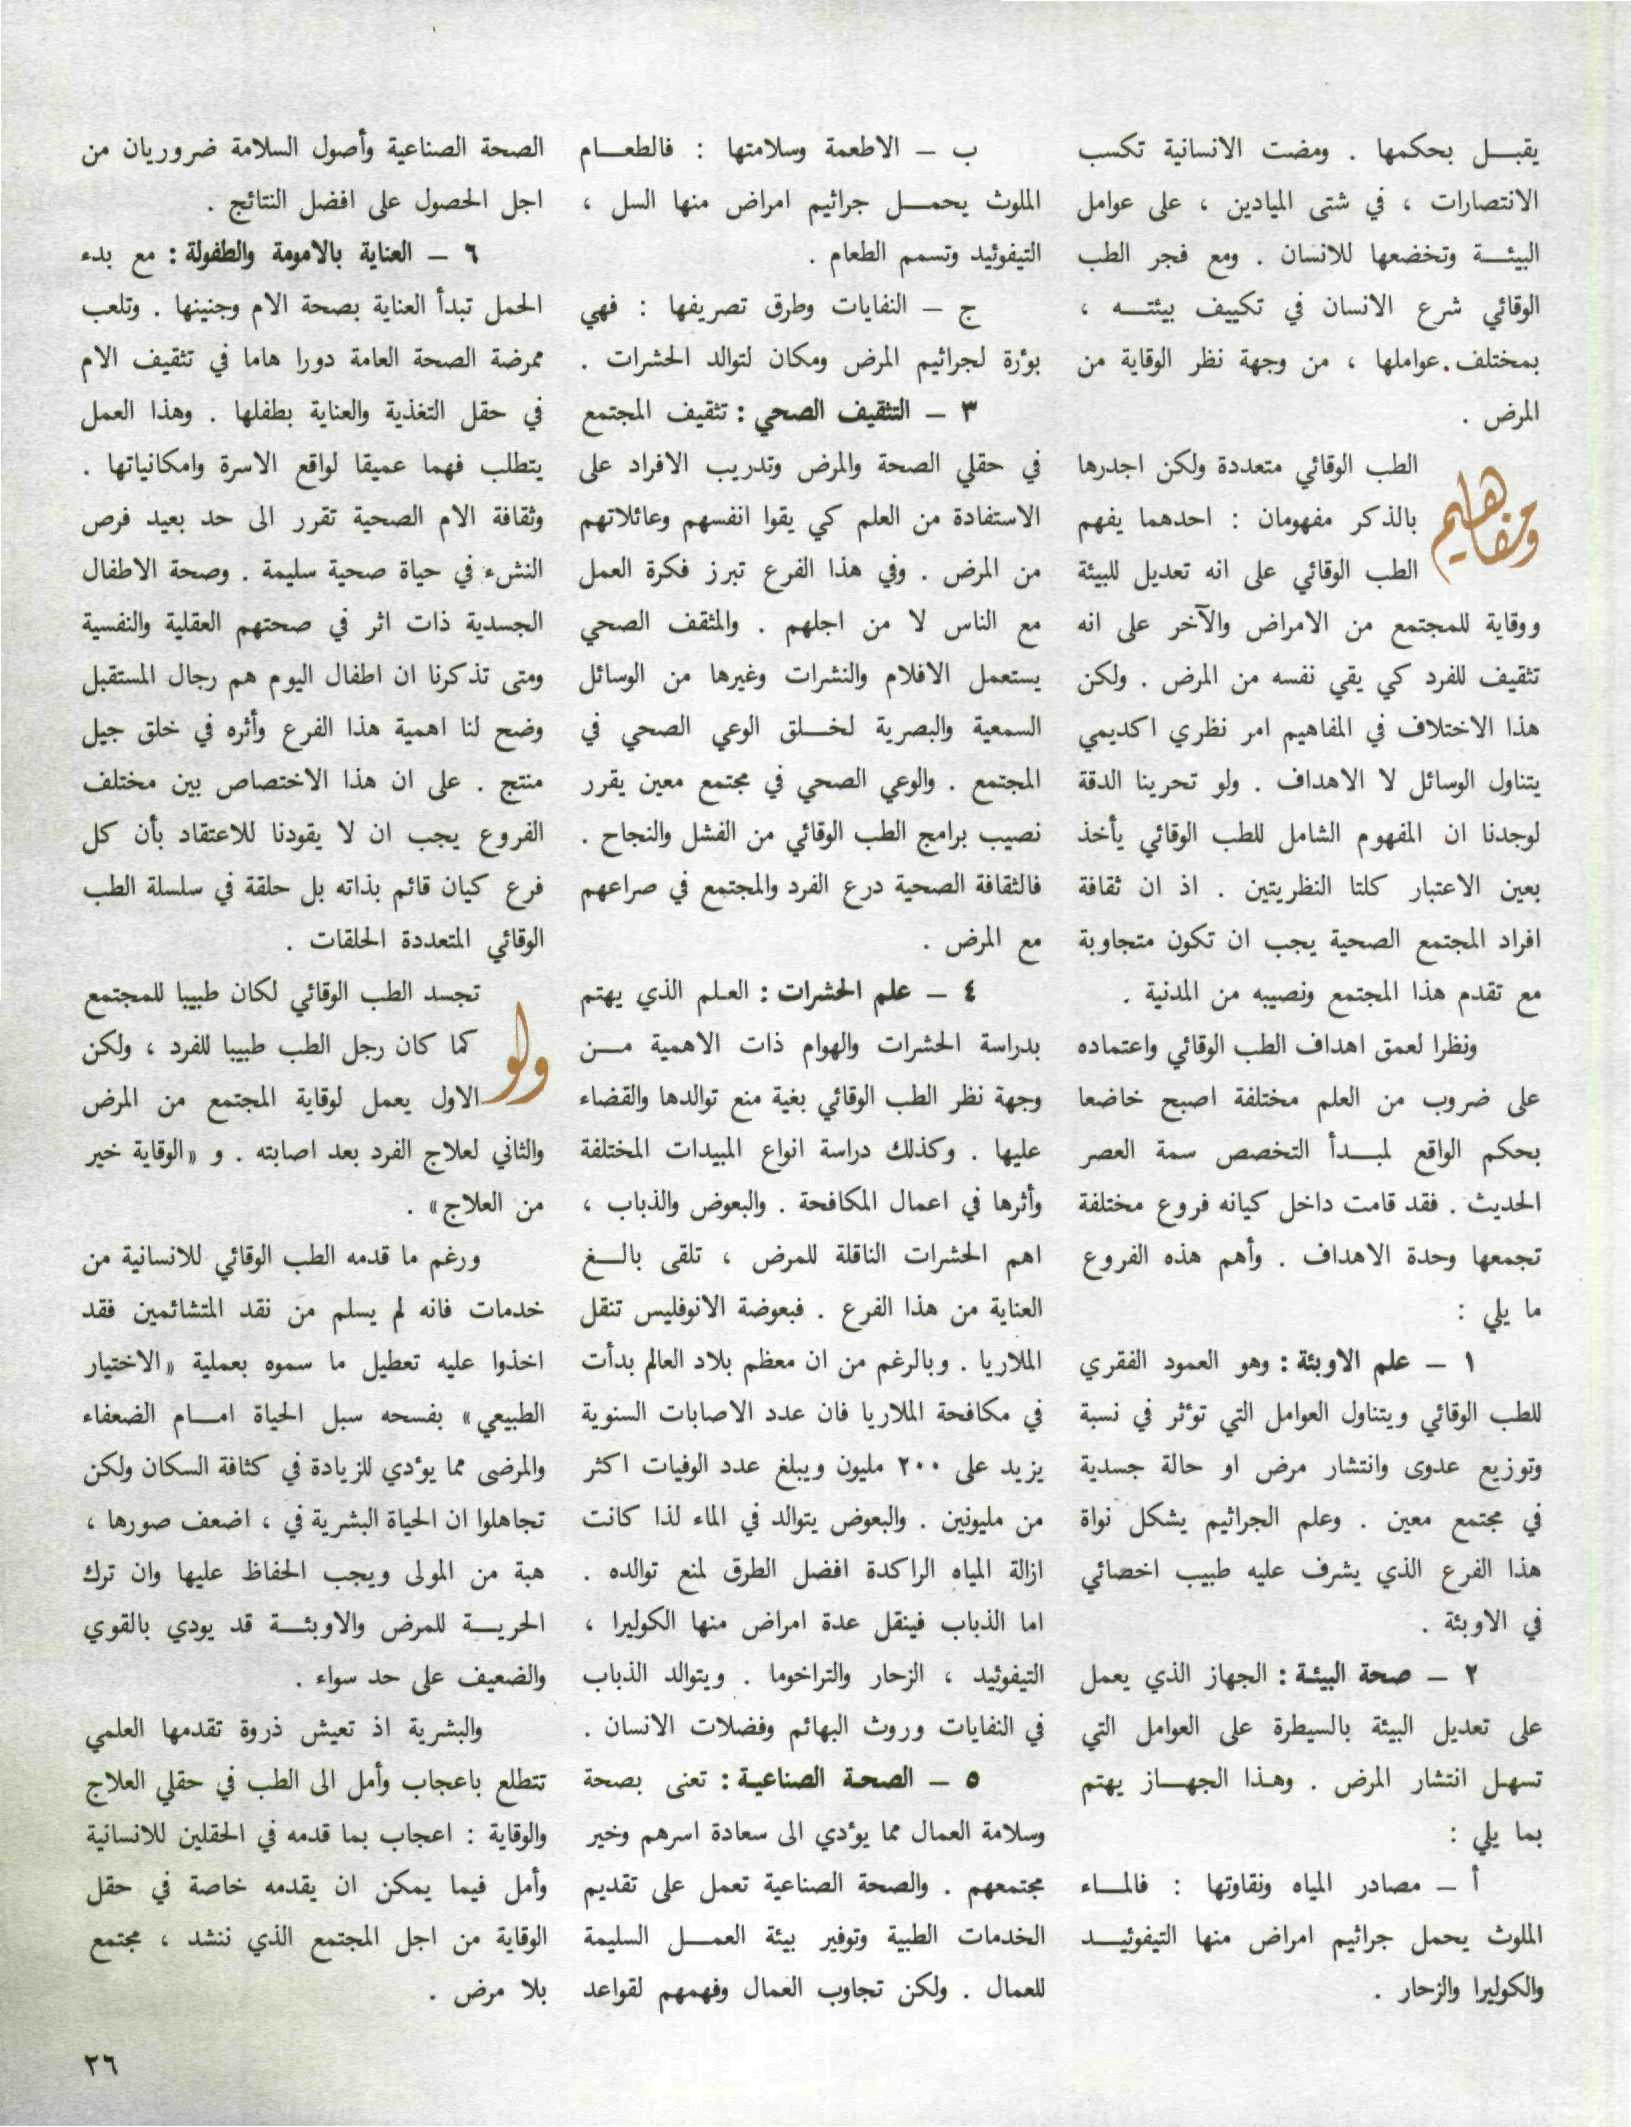 يقبل بحكمها . ومضت الانسانية تكسب
الانتصارات ، في شتى الميادين ، على عوامل
البيئة وتخضعها للانسان . ومع فجر الطب
الوقائي شرع الانسان في تكييف بيئته ،
بمختلف عواملها ، من وجهة نظر الوقاية من
المرض .
ومفاهيم الطب الوقائي متعددة ولكن اجدرها
بالذكر مفهومان : احدهما يفهم
الطب الوقائي على انه تعديل للبيئة
ووقاية للمجتمع من الامراض والآخر على انه
تثقيف للفرد كي يقي نفسه من المرض . ولكن
هذا الاختلاف في المفاهيم امر نظري اكديمي
يتناول الوسائل لا الاهداف . ولو تحرينا الدقة
لوجدنا ان المفهوم الشامل للطب الوقائي يأخذ
بعين الاعتبار كلتا النظريتين . اذ ان ثقافة
افراد المجتمع الصحية يجب ان تكون متجاوبة
مع تقدم هذا المجتمع ونصيبه من المدنية .
ونظرا لعمق اهداف الطب الوقائي واعتماده
على ضروب من العلم مختلفة اصبح خاضعا
بحكم الواقع لمبدأ التخصص سمة العصر
الحديث . فقد قامت داخل كيانه فروع مختلفة
تجمعها وحدة الاهداف . وأهم هذه الفروع
ما يلي :
١ – علم الاوبئة : وهو العمود الفقري
للطب الوقائي ويتناول العوامل التي تؤثر في نسبة
وتوزيع عدوى وانتشار مرض او حالة جسدية
في مجتمع معين . وعلم الجراثيم يشكل نواة
هذا الفرع الذي يشرف عليه طبيب اخصائي
في الاوبئة .
٢ – صحة البيئة : الجهاز الذي يعمل
على تعديل البيئة بالسيطرة على العوامل التي
تسهل انتشار المرض . وهذا الجهاز يهتم
بما يلي :
أ – مصادر المياه ونقاوتها : فالماء
الملوث يحمل جراثيم امراض منها التيفوئيد
والكوليرا والزحار .
ب – الاطعمة وسلامتها : فالطعام
الملوث يحمل جراثيم امراض منها السل ،
التيفوئيد وتسمم الطعام .
ج – النفايات وطرق تصريفها : فهي
بؤرة لجراثيم المرض ومكان لتوالد الحشرات .
٣ – التثقيف الصحي : تثقيف المجتمع
في حقلي الصحة والمرض وتدريب الافراد على
الاستفادة من العلم كي يقوا انفسهم وعائلاتهم
من المرض . وفي هذا الفرع تبرز فكرة العمل
مع الناس لا من اجلهم . والمثقف الصحي
يستعمل الافلام والنشرات وغيرها من الوسائل
السمعية والبصرية لخلق الوعي الصحي في
المجتمع . والوعي الصحي في مجتمع معين يقرر
نصيب برامج الطب الوقائي من الفشل والنجاح .
فالثقافة الصحية درع الفرد والمجتمع في صراعهم
مع المرض .
٤ – علم الحشرات : العلم الذي يهتم
بدراسة الحشرات والهوام ذات الاهمية من
وجهة نظر الطب الوقائي بغية منع توالدها والقضاء
عليها . وكذلك دراسة انواع المبيدات المختلفة
وأثرها في اعمال المكافحة . والبعوض والذباب ،
اهم الحشرات الناقلة للمرض ، تلقى بالغ
العناية من هذا الفرع . فبعوضة الانوفليس تنقل
الملاريا . وبالرغم من ان معظم بلاد العالم بدأت
في مكافحة الملاريا فان عدد الاصابات السنوية
يزيد على ٢٠٠ مليون ويبلغ عدد الوفيات اكثر
من مليونين . والبعوض يتوالد في الماء لذا كانت
ازالة المياه الراكدة افضل الطرق لمنع توالده .
اما الذباب فينقل عدة امراض منها الكوليرا ،
التيفوئيد ، الزحار والتراخوما . ويتوالد الذباب
في النفايات وروث البهائم وفضلات الانسان .
٥ – الصحة الصناعية : تعنى بصحة
وسلامة العمال مما يؤدي الى سعادة اسرهم وخير
مجتمعهم . والصحة الصناعية تعمل على تقديم
الخدمات الطبية وتوفير بيئة العمل السليمة
للعمال . ولكن تجاوب العمال وفهمهم لقواعد
الصحة الصناعية وأصول السلامة ضروريان من
اجل الحصول على افضل النتائج .
٦ – العناية بالامومة والطفولة : مع بدء
الحمل تبدأ العناية بصحة الام وجنينها . وتلعب
ممرضة الصحة العامة دورا هاما في تثقيف الام
في حقل التغذية والعناية بطفلها . وهذا العمل
يتطلب فهما عميقا لواقع الاسرة وامكانياتها .
وثقافة الام الصحية تقرر الى حد بعيد فرص
النشء في حياة صحية سليمة . وصحة الاطفال
الجسدية ذات اثر في صحتهم العقلية والنفسية
ومتى تذكرنا ان اطفال اليوم هم رجال المستقبل
وضح لنا اهمية هذا الفرع وأثره في خلق جيل
منتج . على ان هذا الاختصاص بين مختلف
الفروع يجب ان لا يقودنا للاعتقاد بأن كل
فرع كيان قائم بذاته بل حلقة في سلسلة الطب
الوقائي المتعددة الحلقات .
ولو تجسد الطب الوقائي لكان طبيبا للمجتمع
كما كان رجل الطب طبيبا للفرد ، ولكن
الاول يعمل لوقاية المجتمع من المرض
والثاني لعلاج الفرد بعد اصابته . و «الوقاية خير
من العلاج» .
ورغم ما قدمه الطب الوقائي للانسانية من
خدمات فانه لم يسلم من نقد المتشائمين فقد
اخذوا عليه تعطيل ما سموه بعملية «الاختيار
الطبيعي» بفسحه سبل الحياة امام الضعفاء
والمرضى مما يؤدي للزيادة في كثافة السكان ولكن
تجاهلوا ان الحياة البشرية في ، اضعف صورها ،
هبة من المولى ويجب الحفاظ عليها وان ترك
الحرية للمرض والاوبئة قد يودي بالقوي
والضعيف على حد سواء .
والبشرية اذ تعيش ذروة تقدمها العلمي
تتطلع باعجاب وأمل الى الطب في حقلي العلاج
والوقاية : اعجاب بما قدمه في الحقلين للانسانية
وأمل فيما يمكن ان يقدمه خاصة في حقل
الوقاية من اجل المجتمع الذي ننشد ، مجتمع
بلا مرض .
٢٦